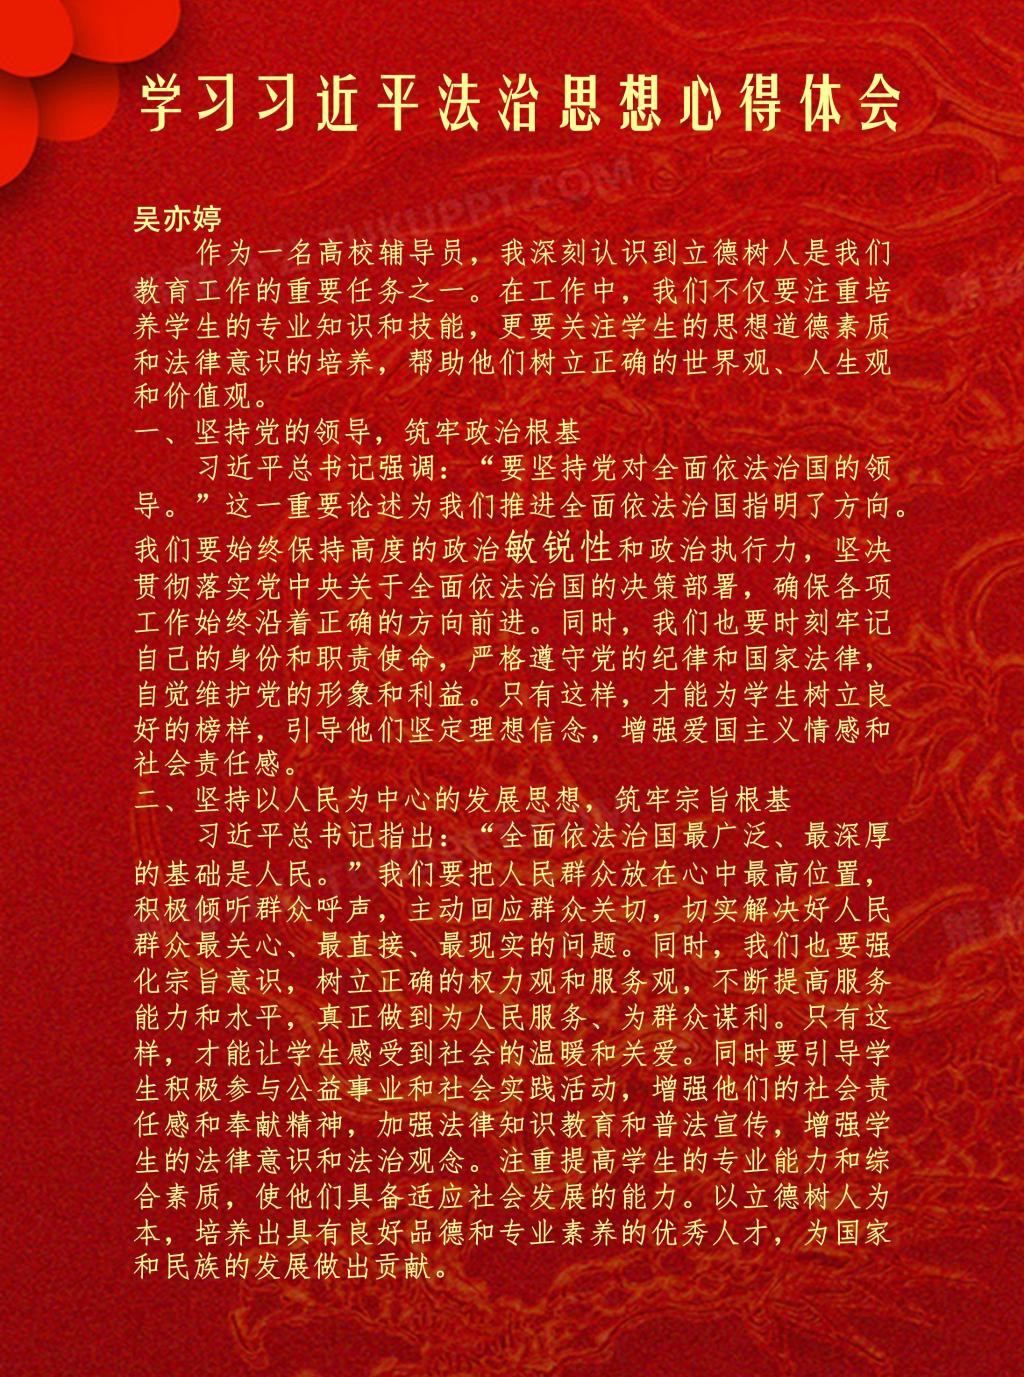 学习习近平法治思想心得体会
吴亦婷
作为一名高校辅导员，我深刻认识到立德树人是我们
教育工作的重要任务之一。在工作中，我们不仅要注重培
养学生的专业知识和技能，更要关注学生的思想道德素质
和法律意识的培养，帮助他们树立正确的世界观、人生观
和价值观。
一、坚持党的领导，筑牢政治根基
习近平总书记强调：“要坚持党对全面依法治国的领
导。”这一重要论述为我们推进全面依法治国指明了方向。
我们要始终保持高度的政治敏锐性和政治执行力，坚决
贯彻落实党中央关于全面依法治国的决策部署，确保各项
工作始终沿着正确的方向前进。同时，我们也要时刻牢记
自己的身份和职责使命，严格遵守党的纪律和国家法律，
自觉维护党的形象和利益。只有这样，才能为学生树立良
好的榜样，引导他们坚定理想信念，增强爱国主义情感和
社会责任感。
二、坚持以人民为中心的发展思想，筑牢宗旨根基
习近平总书记指出：“全面依法治国最广泛、最深厚
的基础是人民。”我们要把人民群众放在心中最高位置，
积极倾听群众呼声，主动回应群众关切，切实解决好人民
群众最关心、最直接、最现实的问题。同时，我们也要强
化宗旨意识，树立正确的权力观和服务观，不断提高服务
能力和水平，真正做到为人民服务、为群众谋利。只有这
样，才能让学生感受到社会的温暖和关爱。同时要引导学
生积极参与公益事业和社会实践活动，增强他们的社会责
任感和奉献精神，加强法律知识教育和普法宣传，增强学
生的法律意识和法治观念。注重提高学生的专业能力和综
合素质，使他们具备适应社会发展的能力。以立德树人为
本，培养出具有良好品德和专业素养的优秀人才，为国家
和民族的发展做出贡献。